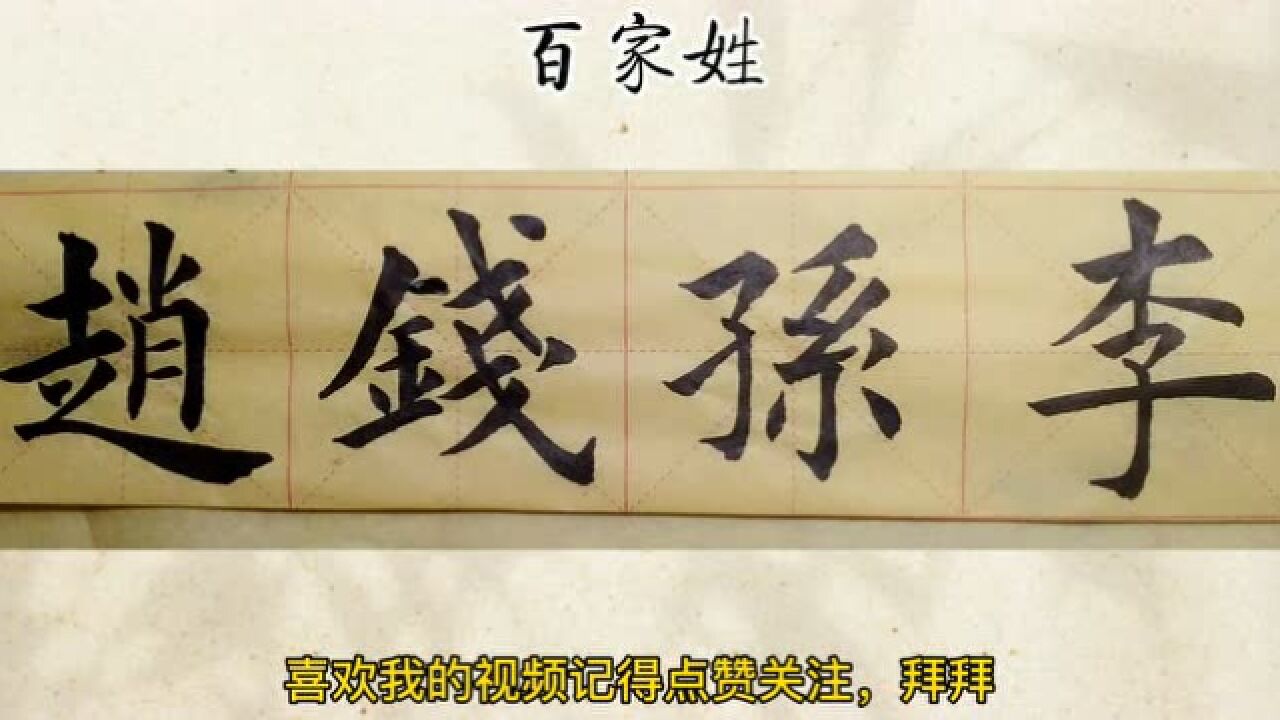 百家姓
趙錢孫李
喜欢我的视频记得点赞关注，拜拜